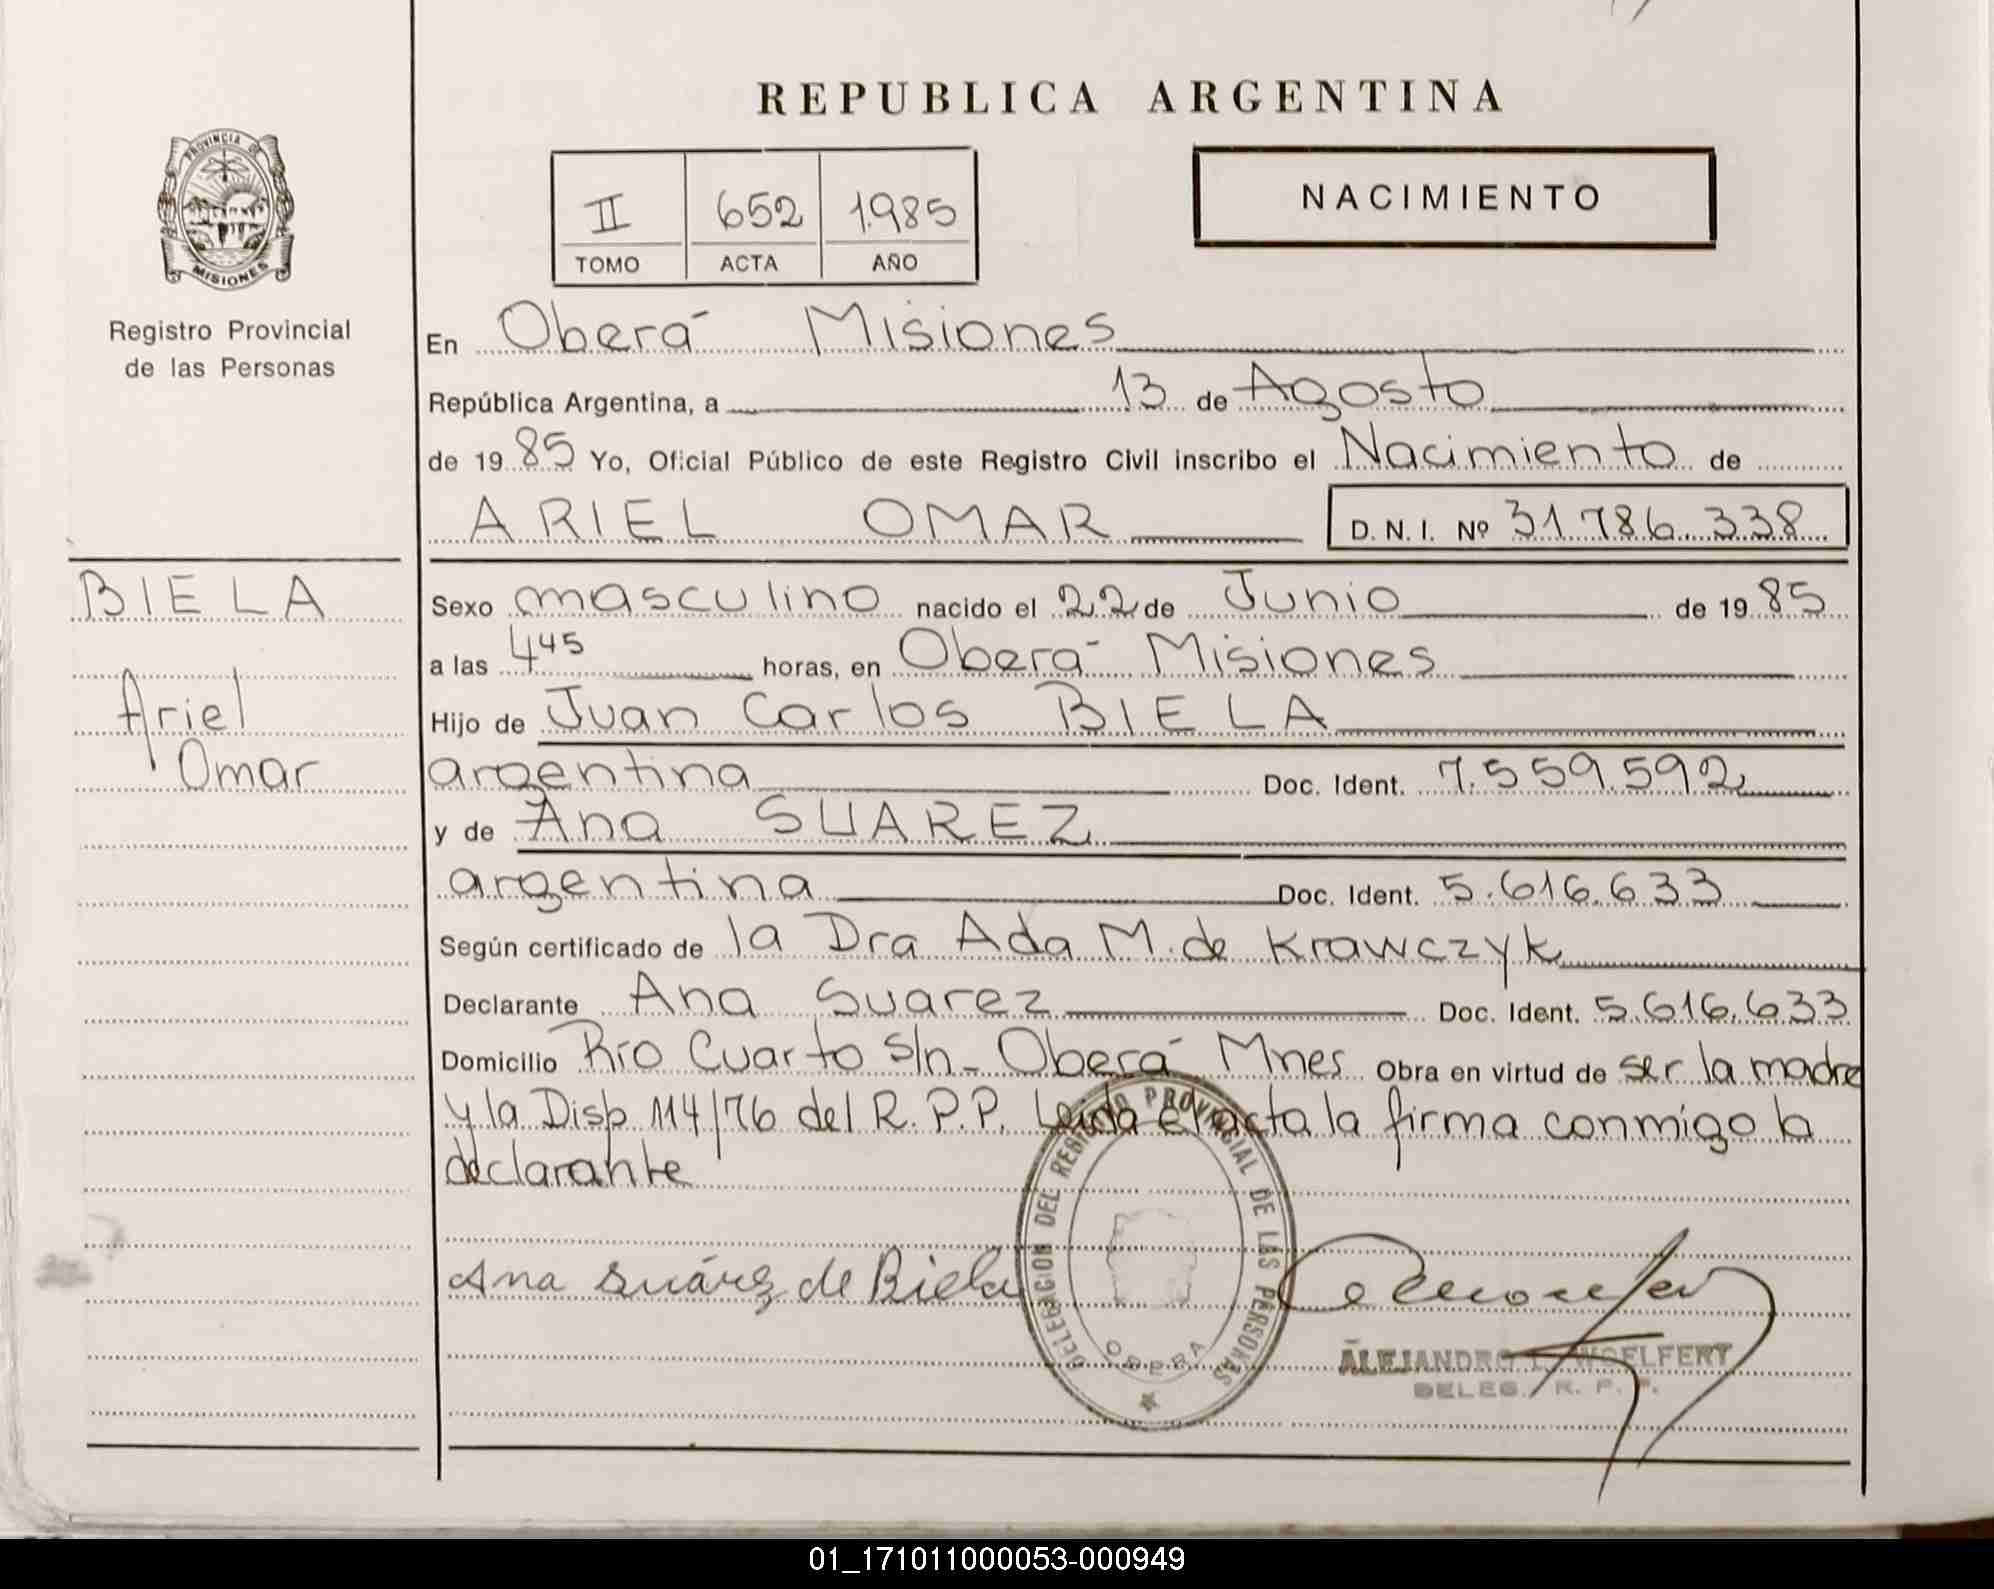 REPUBLICA ARGENTINA
PROVINCIA DE
MISIONES
Registro Provincial
de las Personas
NACIMIENTO
II 652 1.985
TOMO ACTA AÑO
En Oberá Misiones
República Argentina, a 13 de Agosto
de 19 85 Yo, Oficial Público de este Registro Civil inscribo el Nacimiento de
ARIEL OMAR D. N. I. Nº 31.786.338
BIELA
Ariel
Omar
Sexo masculino nacido el 22 de Junio de 19 85
a las 4 45 horas, en Oberá Misiones
Hijo de Juan Carlos BIELA
argentina Doc. Ident. 7.559.592
y de Ana SUAREZ
argentina Doc. Ident. 5.616.633
Según certificado de la Dra Ada M. de Krawczyk
Declarante Ana Suarez Doc. Ident. 5.616.633
Domicilio Río Cuarto s/n - Oberá Mnes Obra en virtud de ser la madre
y la Disp 114/76 del R.P.P. Leida el acta la firma conmigo la
declarante
DELEGACION DEL REGISTRO PROVINCIAL DE LAS PERSONAS
OBERA
Ana Suárez de Biela
ALEJANDRO L. WOELFERT
DELEG. R. P. P.
01_171011000053-000949